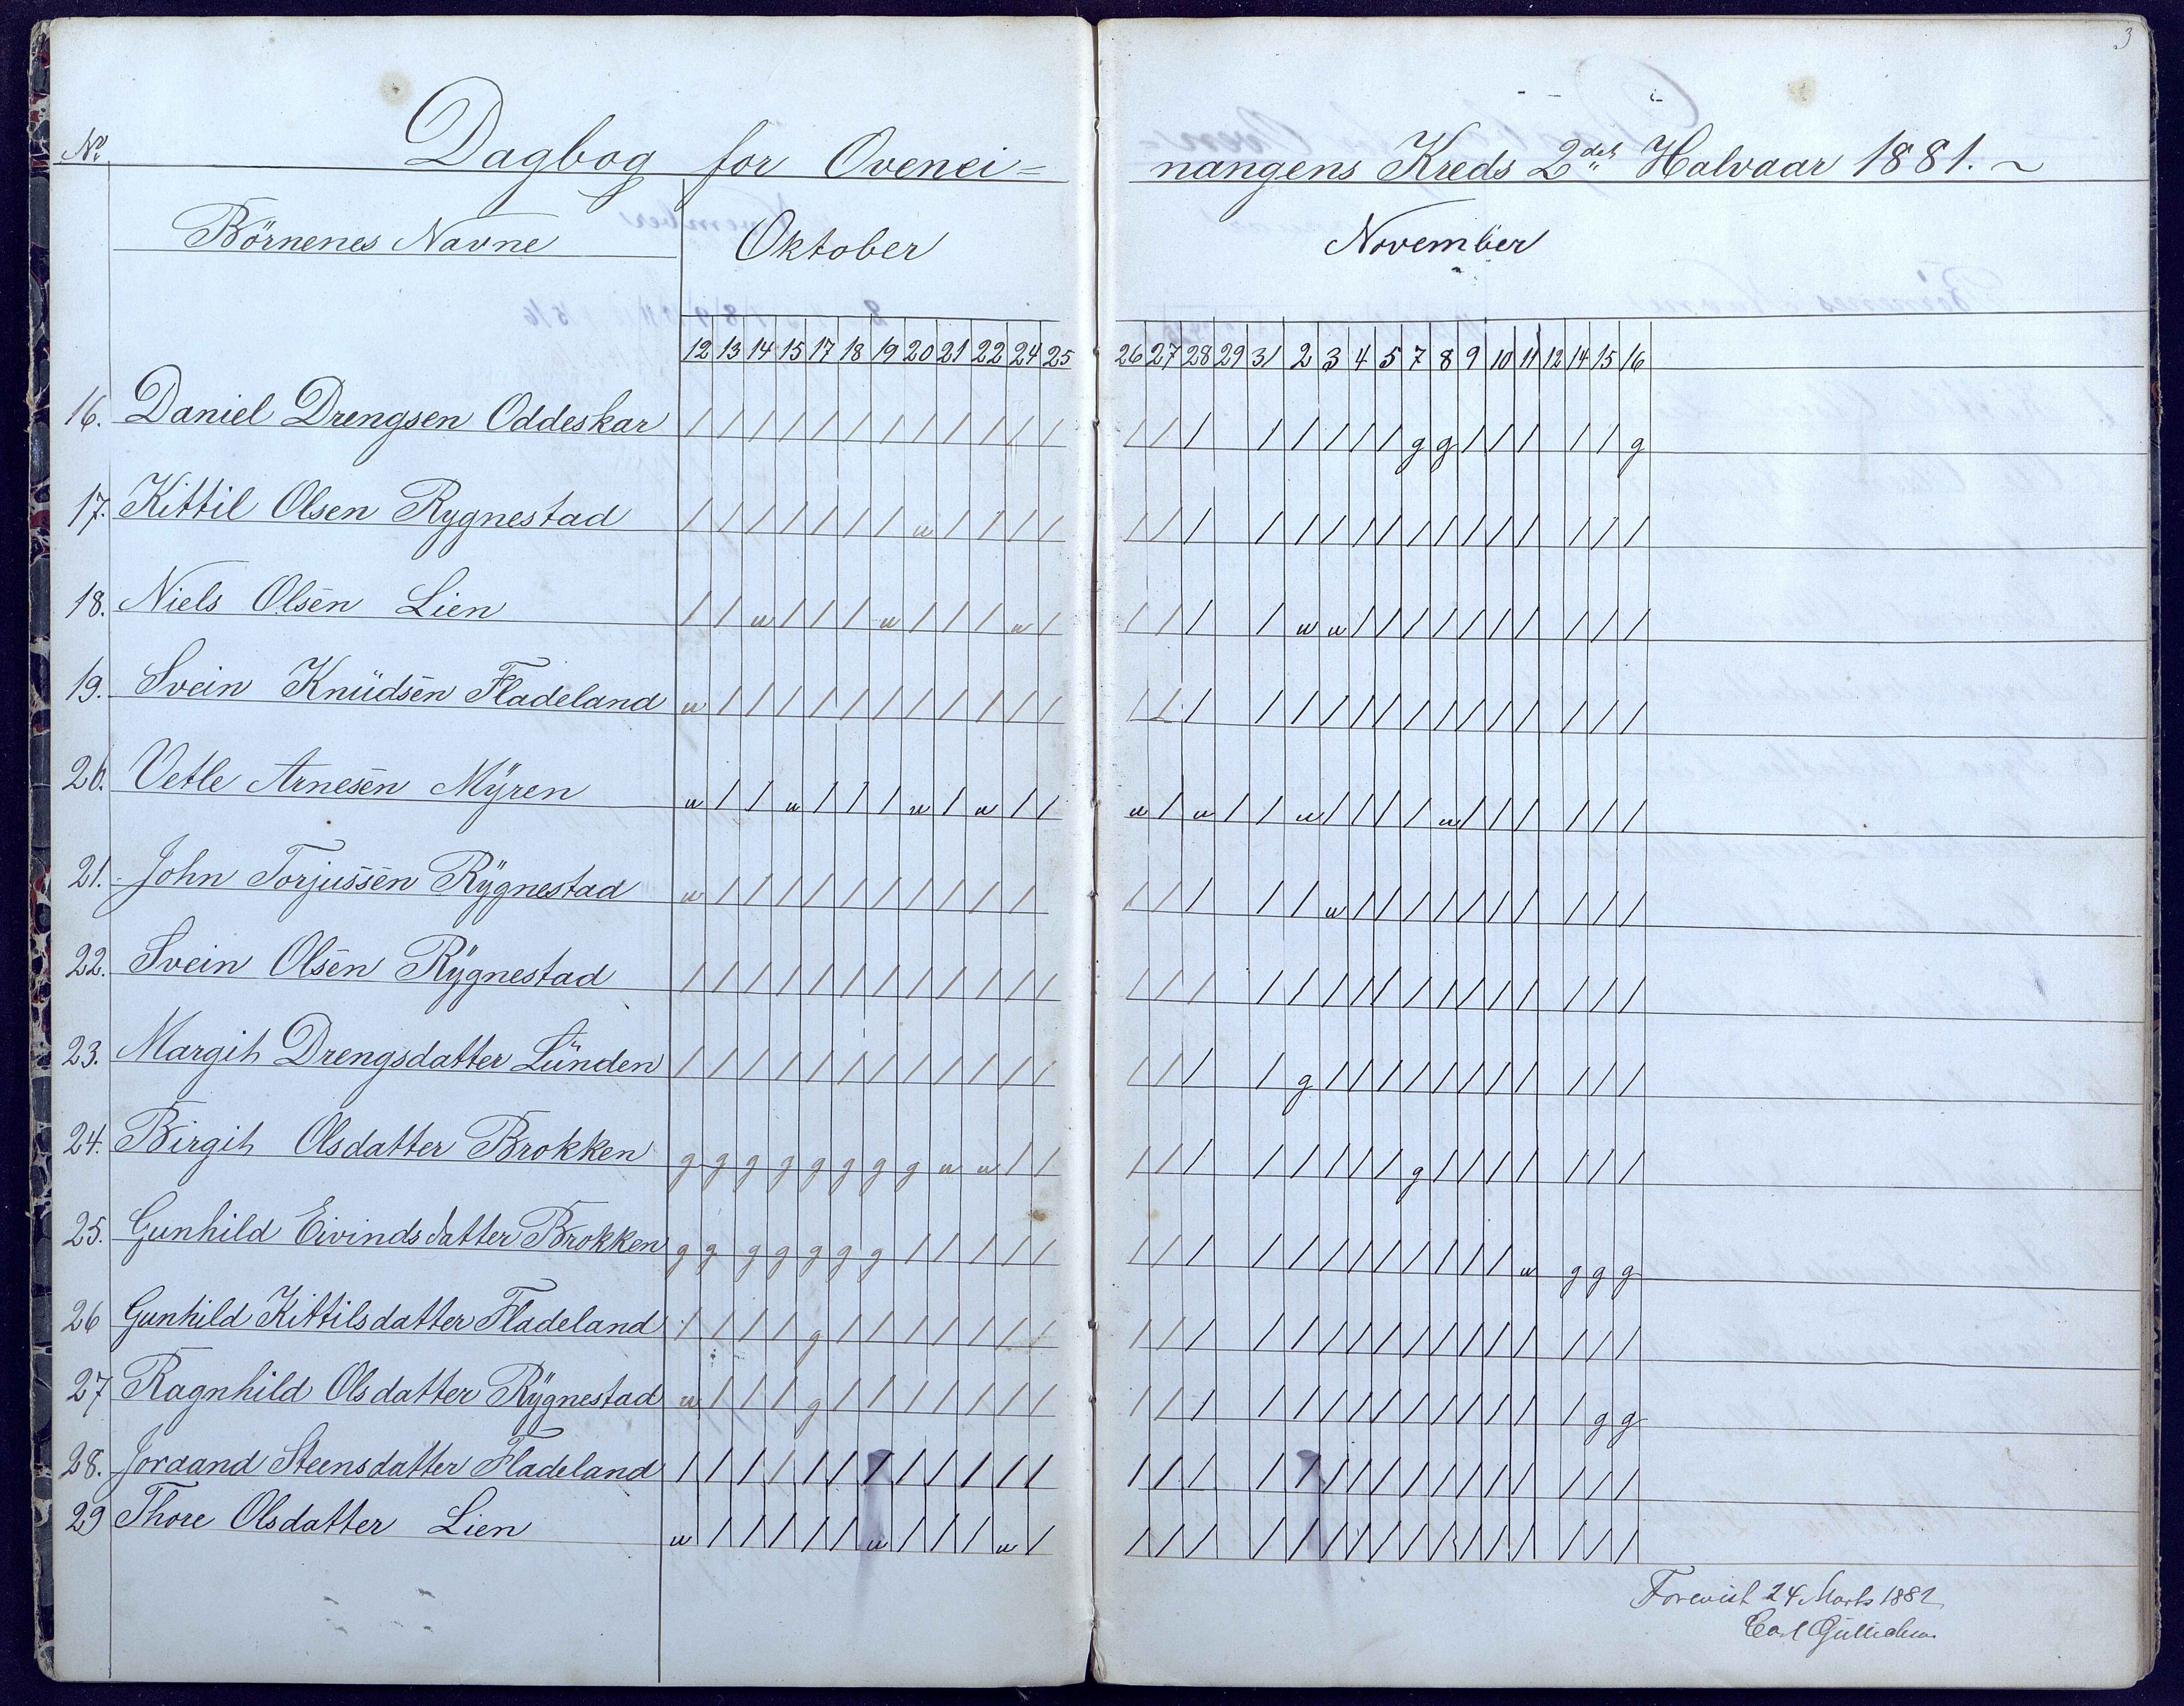 3
No. Dagbog for Ovenei= nangens Kreds 2det Halvaar 1881. ~
Börnenes Navne Oktober November
12 13 14 15 17 18 19 20 21 22 24 25 26 27 28 29 31 2 3 4 5 7 8 9 10 11 12 14 15 16
16. Daniel Drengsen Oddeskar / / / / / / / / / / / / / / / / / / / / g g / / / / / g
17. Kittil Olsen Rygnestad / / / / / / / u / / / / / / / / / / / / / / / / / / / /
18. Niels Olsen Lien / / u / / / u / / / u / / / / / u u / / / / / / / / / /
19. Svein Knüdsen Fladeland u / / / / / / / / / / / / / / / / / / / / / / / / / / /
20. Vetle Arnesen Mÿren u / / u / / / u / u / / u / u / / u / / / / u / / / / / /
21. John Torjussen Rÿgnestad u / / / / / / / / / / / / / / / u / / / / / / / / / /
22. Svein Olsen Rÿgnestad / / / / / / / / / / / / / / / / / / / / / / / / / / / /
23. Margit Drengsdatter Lünden / / / / / / / / / / / / / / / / g / / / / / / / / / / /
24. Birgit Olsdatter Brokken g g g g g g g g u u / / / / / / / / / / g / / / / / / /
25. Gunhild Eivindsdatter Brokken g g g g g g g / / / / / / / / / / / / / / / / / u g g g
26 Gunhild Kittilsdatter Fladeland / / / / g / / / / / / / / / / / / / / / / / / / / / / /
27 Ragnhild Olsdatter Rÿgnestad u / / / g / / / / / / / / / / / / / / / / / / / / / g g
28. Joraand Steensdatter Fladeland / / / / / / / / / / / / / / / / / / / / / / / / / / / /
29 Thore Olsdatter Lien u / / / / / u / / / u / / / / / / / / / / / / / / / / /
Forevist 24 Marts 1882
Carl